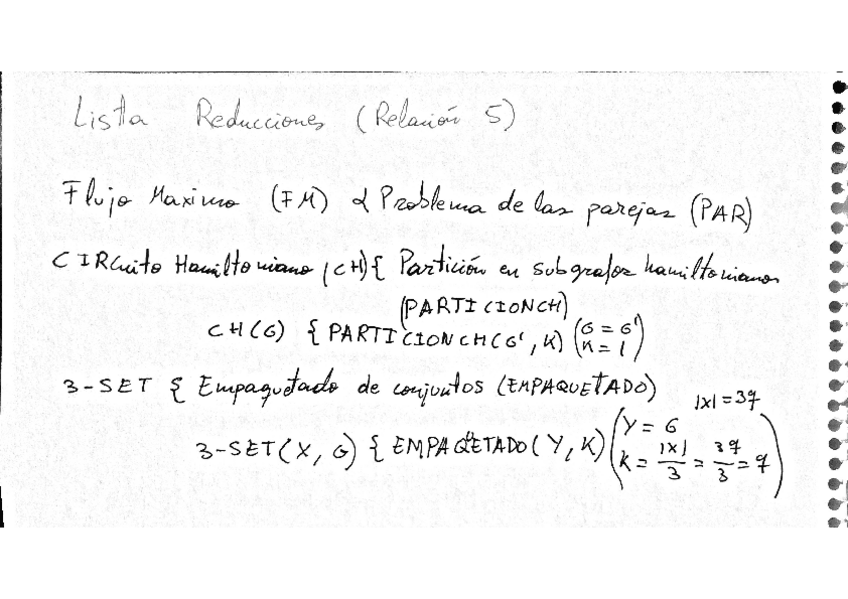 Lista Reducciones (Relación 5)
Flujo Maximo (FM) α Problema de las parejas (PAR)
CIRCuito Hamiltoniano (CH) { Partición en subgrafos hamiltonianos
(PARTICIONCH)
CH(G) { PARTICIONCH(G', K) (G = G' K = 1)
3-SET { Empaquetado de conjuntos (EMPAQUETADO)
|x| = 3q
3-SET(X, G) { EMPAQUETADO(Y, K) (Y = G
K = |x|/3 = 3q/3 = q)